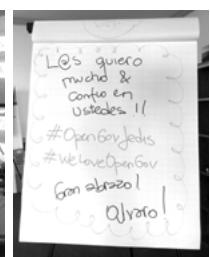 L@s quiero
mucho &
confío en
ustedes !!
#OpenGovJedis
#WeLoveOpenGov
Gran abrazo!
Alvaro!